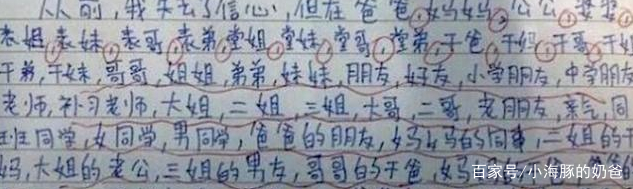 从前,我失去了信心,但在爸爸,妈妈,公公,婆婆
表姐,表妹,表哥,表弟,堂姐,堂妹,堂哥,堂弟,干爸,干妈,干哥,干姐
干弟,干妹,哥哥,姐姐,弟弟,妹妹,朋友,好友,小学朋友,中学朋友
老师,补习老师,大姐,二姐,三姐,大哥,二哥,老朋友,亲气,同
班同学,女同学,男同学,爸爸的朋友,妈妈的同事,二姐的干
妈,大姐的老公,三姐的男友,哥哥的干爸,妈
百家号/小海豚的奶爸